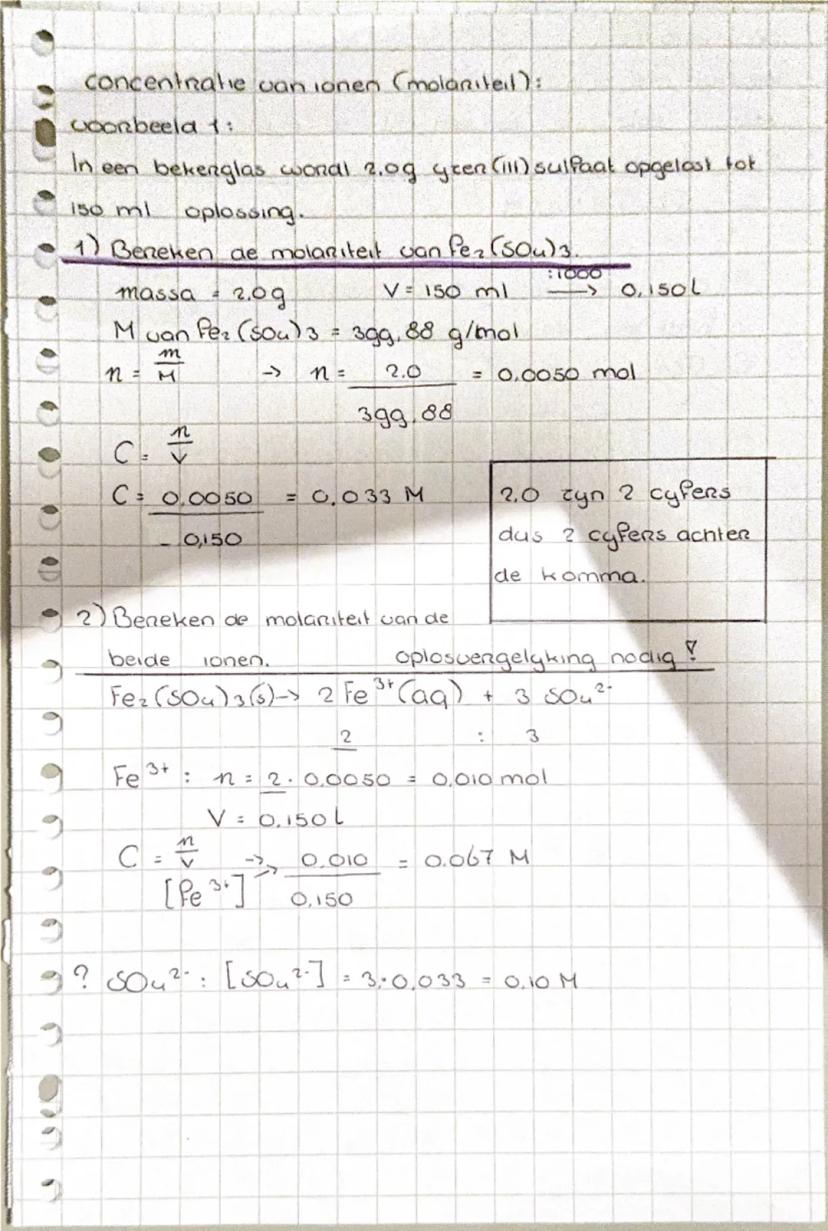 concentratie van ionen (molariteit):
voorbeeld 1:
In een bekerglas wordt 2.0g yzer(III)sulfaat opgelost tot
150 ml oplossing.
1) Bereken de molariteit van Fe₂(SO₄)₃.
massa = 2.0g V = 150 ml :1000 → 0,150L
M van Fe₂(SO₄)₃ = 399,88 g/mol
n = m/M → n = 2.0/399,88 = 0,0050 mol
C = n/V
C = 0,0050/0,150 = 0,033 M
2.0 zyn 2 cyfers
dus 2 cyfers achter
de komma.
2) Bereken de molariteit van de
beide ionen. oplosvergelyking nodig!
Fe₂(SO₄)₃(s) → 2 Fe³⁺(aq) + 3 SO₄²⁻
2 : 3
Fe³⁺ : n = 2 · 0,0050 = 0,010 mol
V = 0,150L
C = n/V →→ 0,010/0,150 = 0,067 M
[Fe³⁺]
? SO₄²⁻ : [SO₄²⁻] = 3·0,033 = 0,10 M